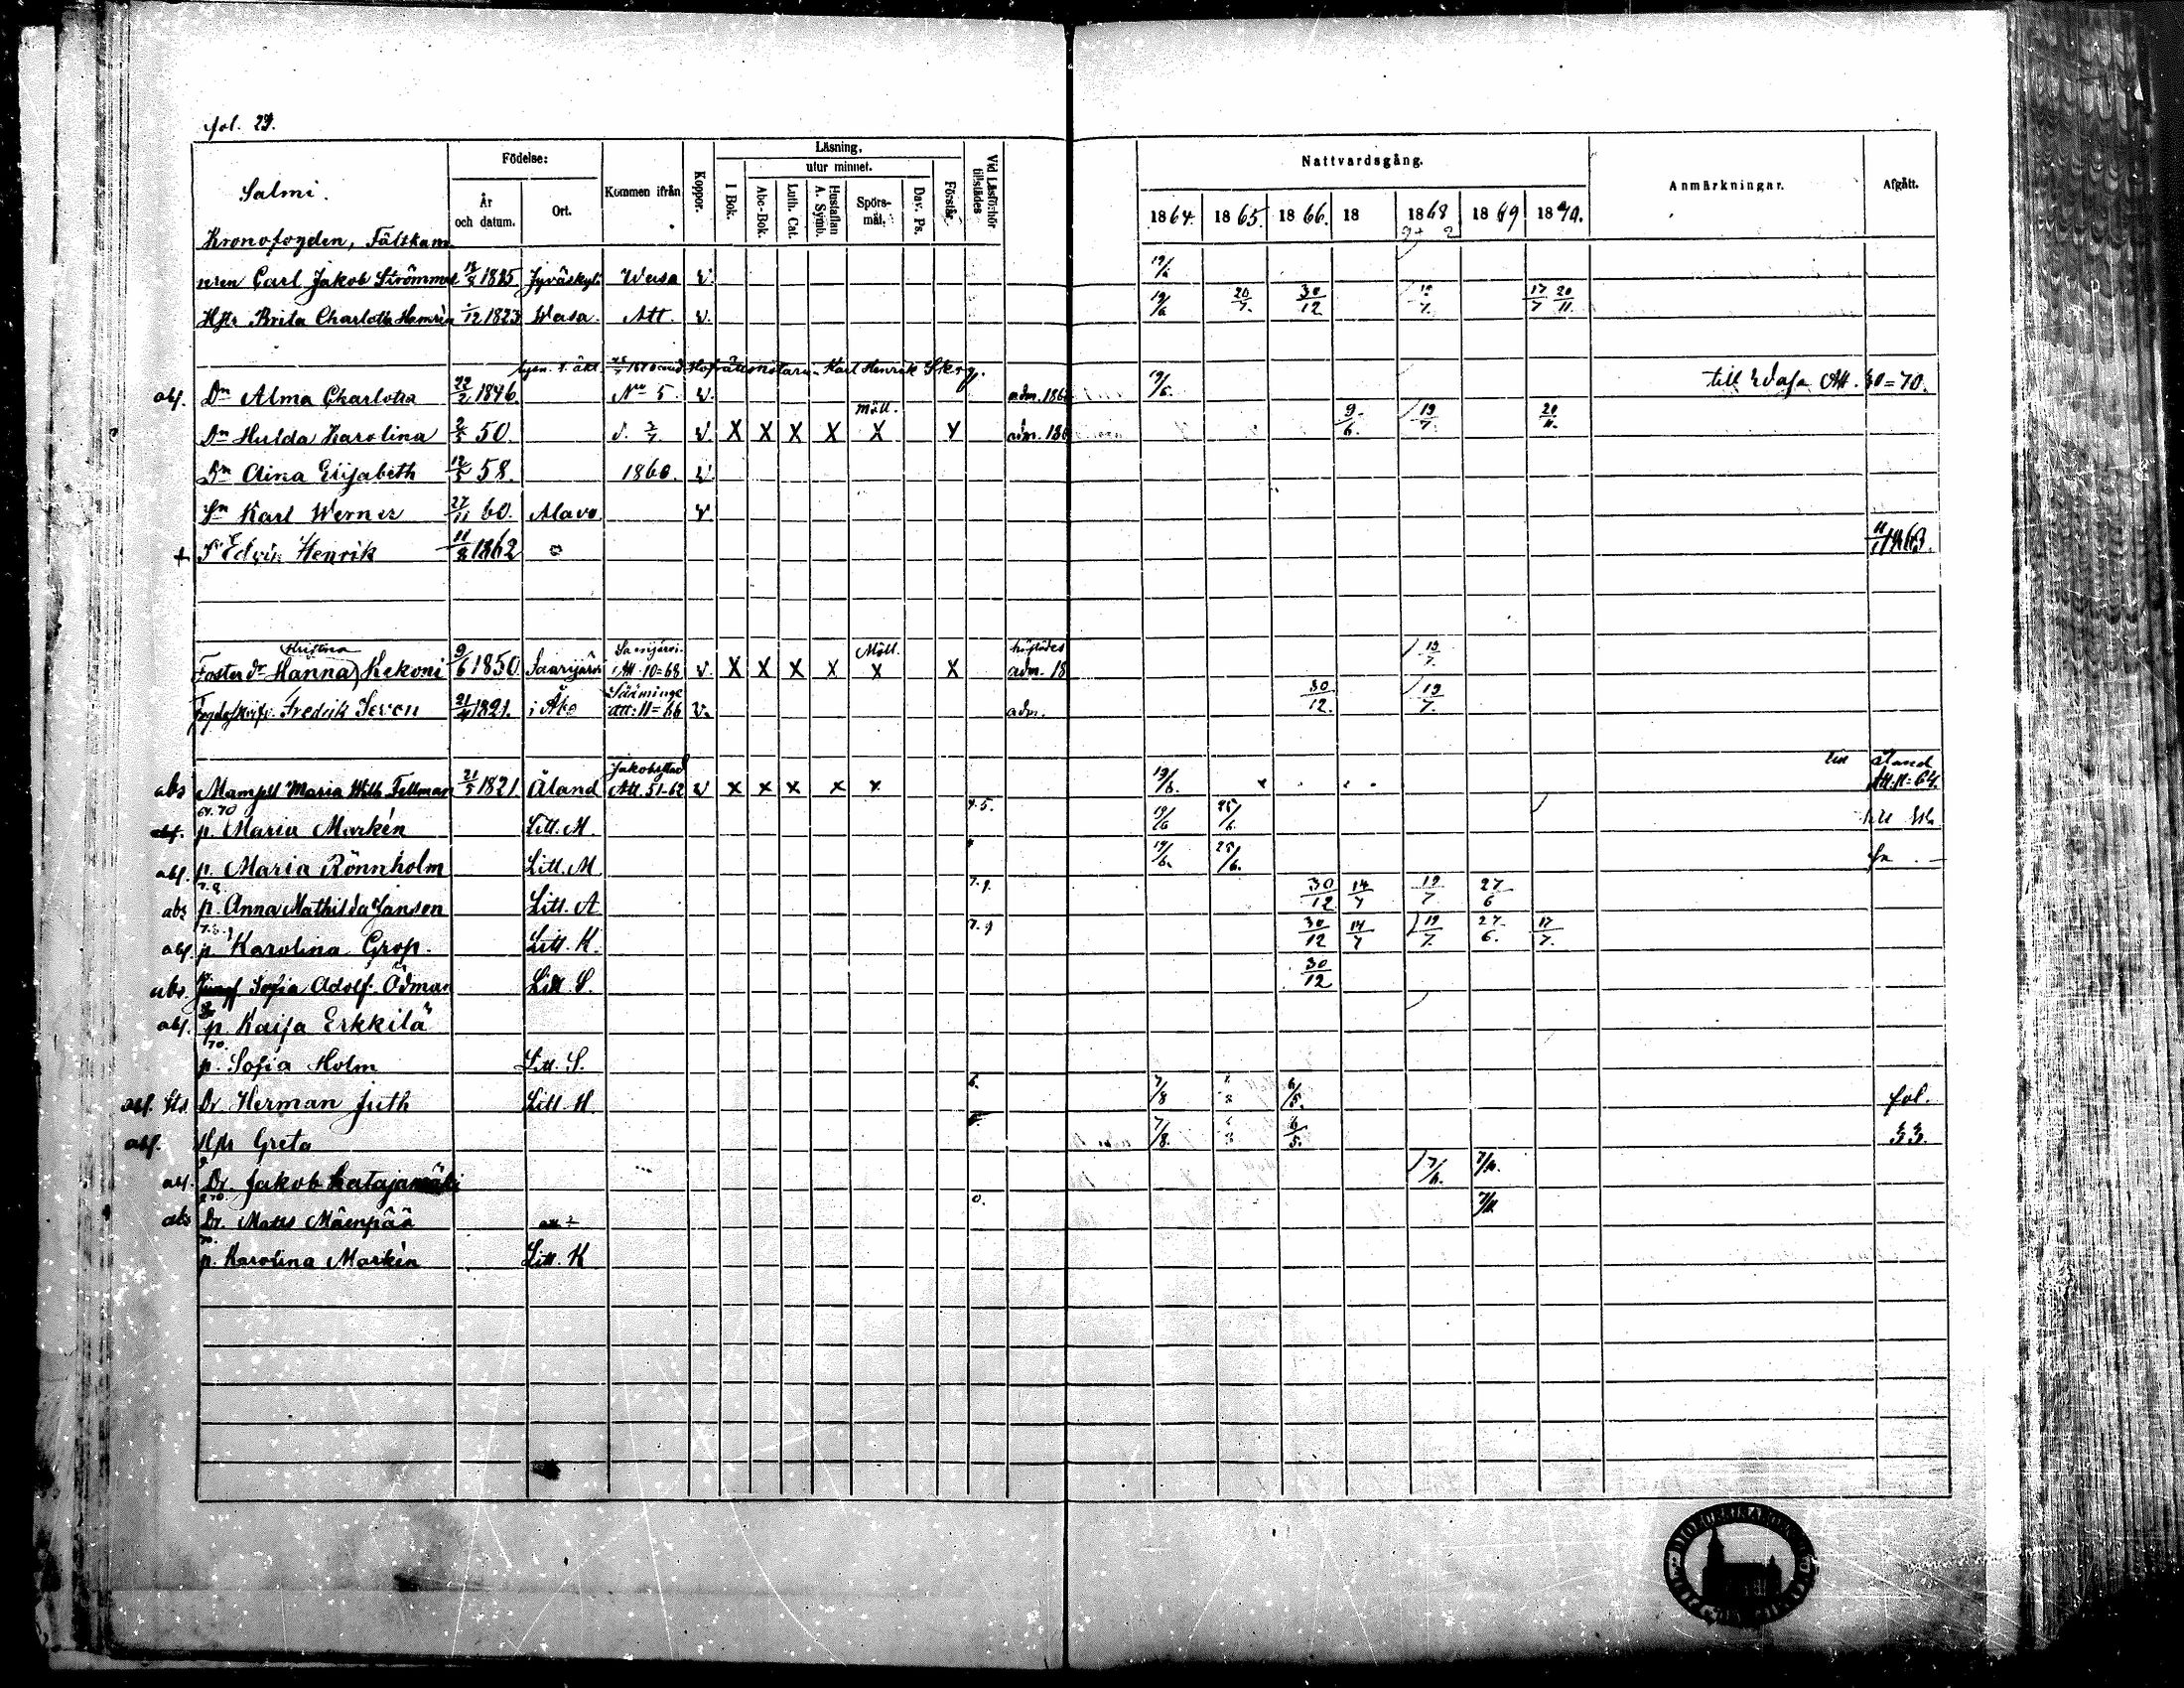 fol. 29.
Salmi.
Födelse:
År och datum.
Ort.
Kommen ifrån
Koppor.
Läsning,
utur minnet.
I Bok.
Abc-Bok.
Luth. Cat.
Hustaflan A. Symb.
Spörs-mål.
Dav. Ps.
Förstår.
Vid Läsförhör tillstädes
Nattvardsgång.
1864. 1865. 1866. 18 1868 1869 1870.
Anmärkningar.
Afgått.
Kronofogden, Fältkam
reren Carl Jakob Strömmer 1825 Jyväskylä Wasa v. 19/6
Hstr Brita Charlotta 1823 Wasa Att. v. 19/6 30/12 17/7 20/11
med Hofrättsnotarien Karl Henrik
abs. Dr Alma Charlotta 22/2 1846. No 5. v. adm. 19/6. till Wasa Att. 30=70.
Dr Hulda Karolina 2/5 50. d. 2/7 v. X X X X mått. X X adm. 9/6. 19/7. 20/11.
Dr Aina Elisabeth 58. 1860. v.
Sn Karl Werner 27/11 60. Alavo v.
+ Sn Edvin Henrik 11/8 1862 11/1 1863.
Kristina
Foster dr Hanna Kekoni 9/6 1850. Saarijärvi Saarijärvi Att. 10=68 v. X X X X Mått. X X adm. 18 19/7.
Fredrik Seven 21/4 1821. i Åbo Sääminge att: 11=66 v. adm. 30/12. 19/7.
abs Mamsell Maria Wilh. Fellman 21/5 1821 Åland Jakobstad Att. 51-62 v x x x x x 19/6. till Åland Att. 11=64.
69. 70
p. Maria Markén Litt. M. 4.5. 19/6 25/6.
abs. p. Maria Rönnholm Litt. M 19/6. 25/6.
7.8.
abs p. Anna Mathilda Jansen Litt. A 7.9. 30/12 14/7 19/7 27/6
abs. p. Karolina Grop. Litt. K. 7.9 30/12 14/7 19/7. 27/6. 17/7.
abs. Sofia Adolf. Ödman Litt. S. 30/12
abs. p. Kaisa Erkkilä
70.
p. Sofia Holm Litt. S.
abs. Dr Herman Juth Litt. H. 6. 7/8 6/5. fol.
abs. Hstr Greta 7/8. 6/5. 33.
abs. Dr. Jakob Katajamäki 7/6. 7/11.
abs Dr. Matts Mäenpää 0. 7/11.
70.
p. Karolina Markén Litt. K